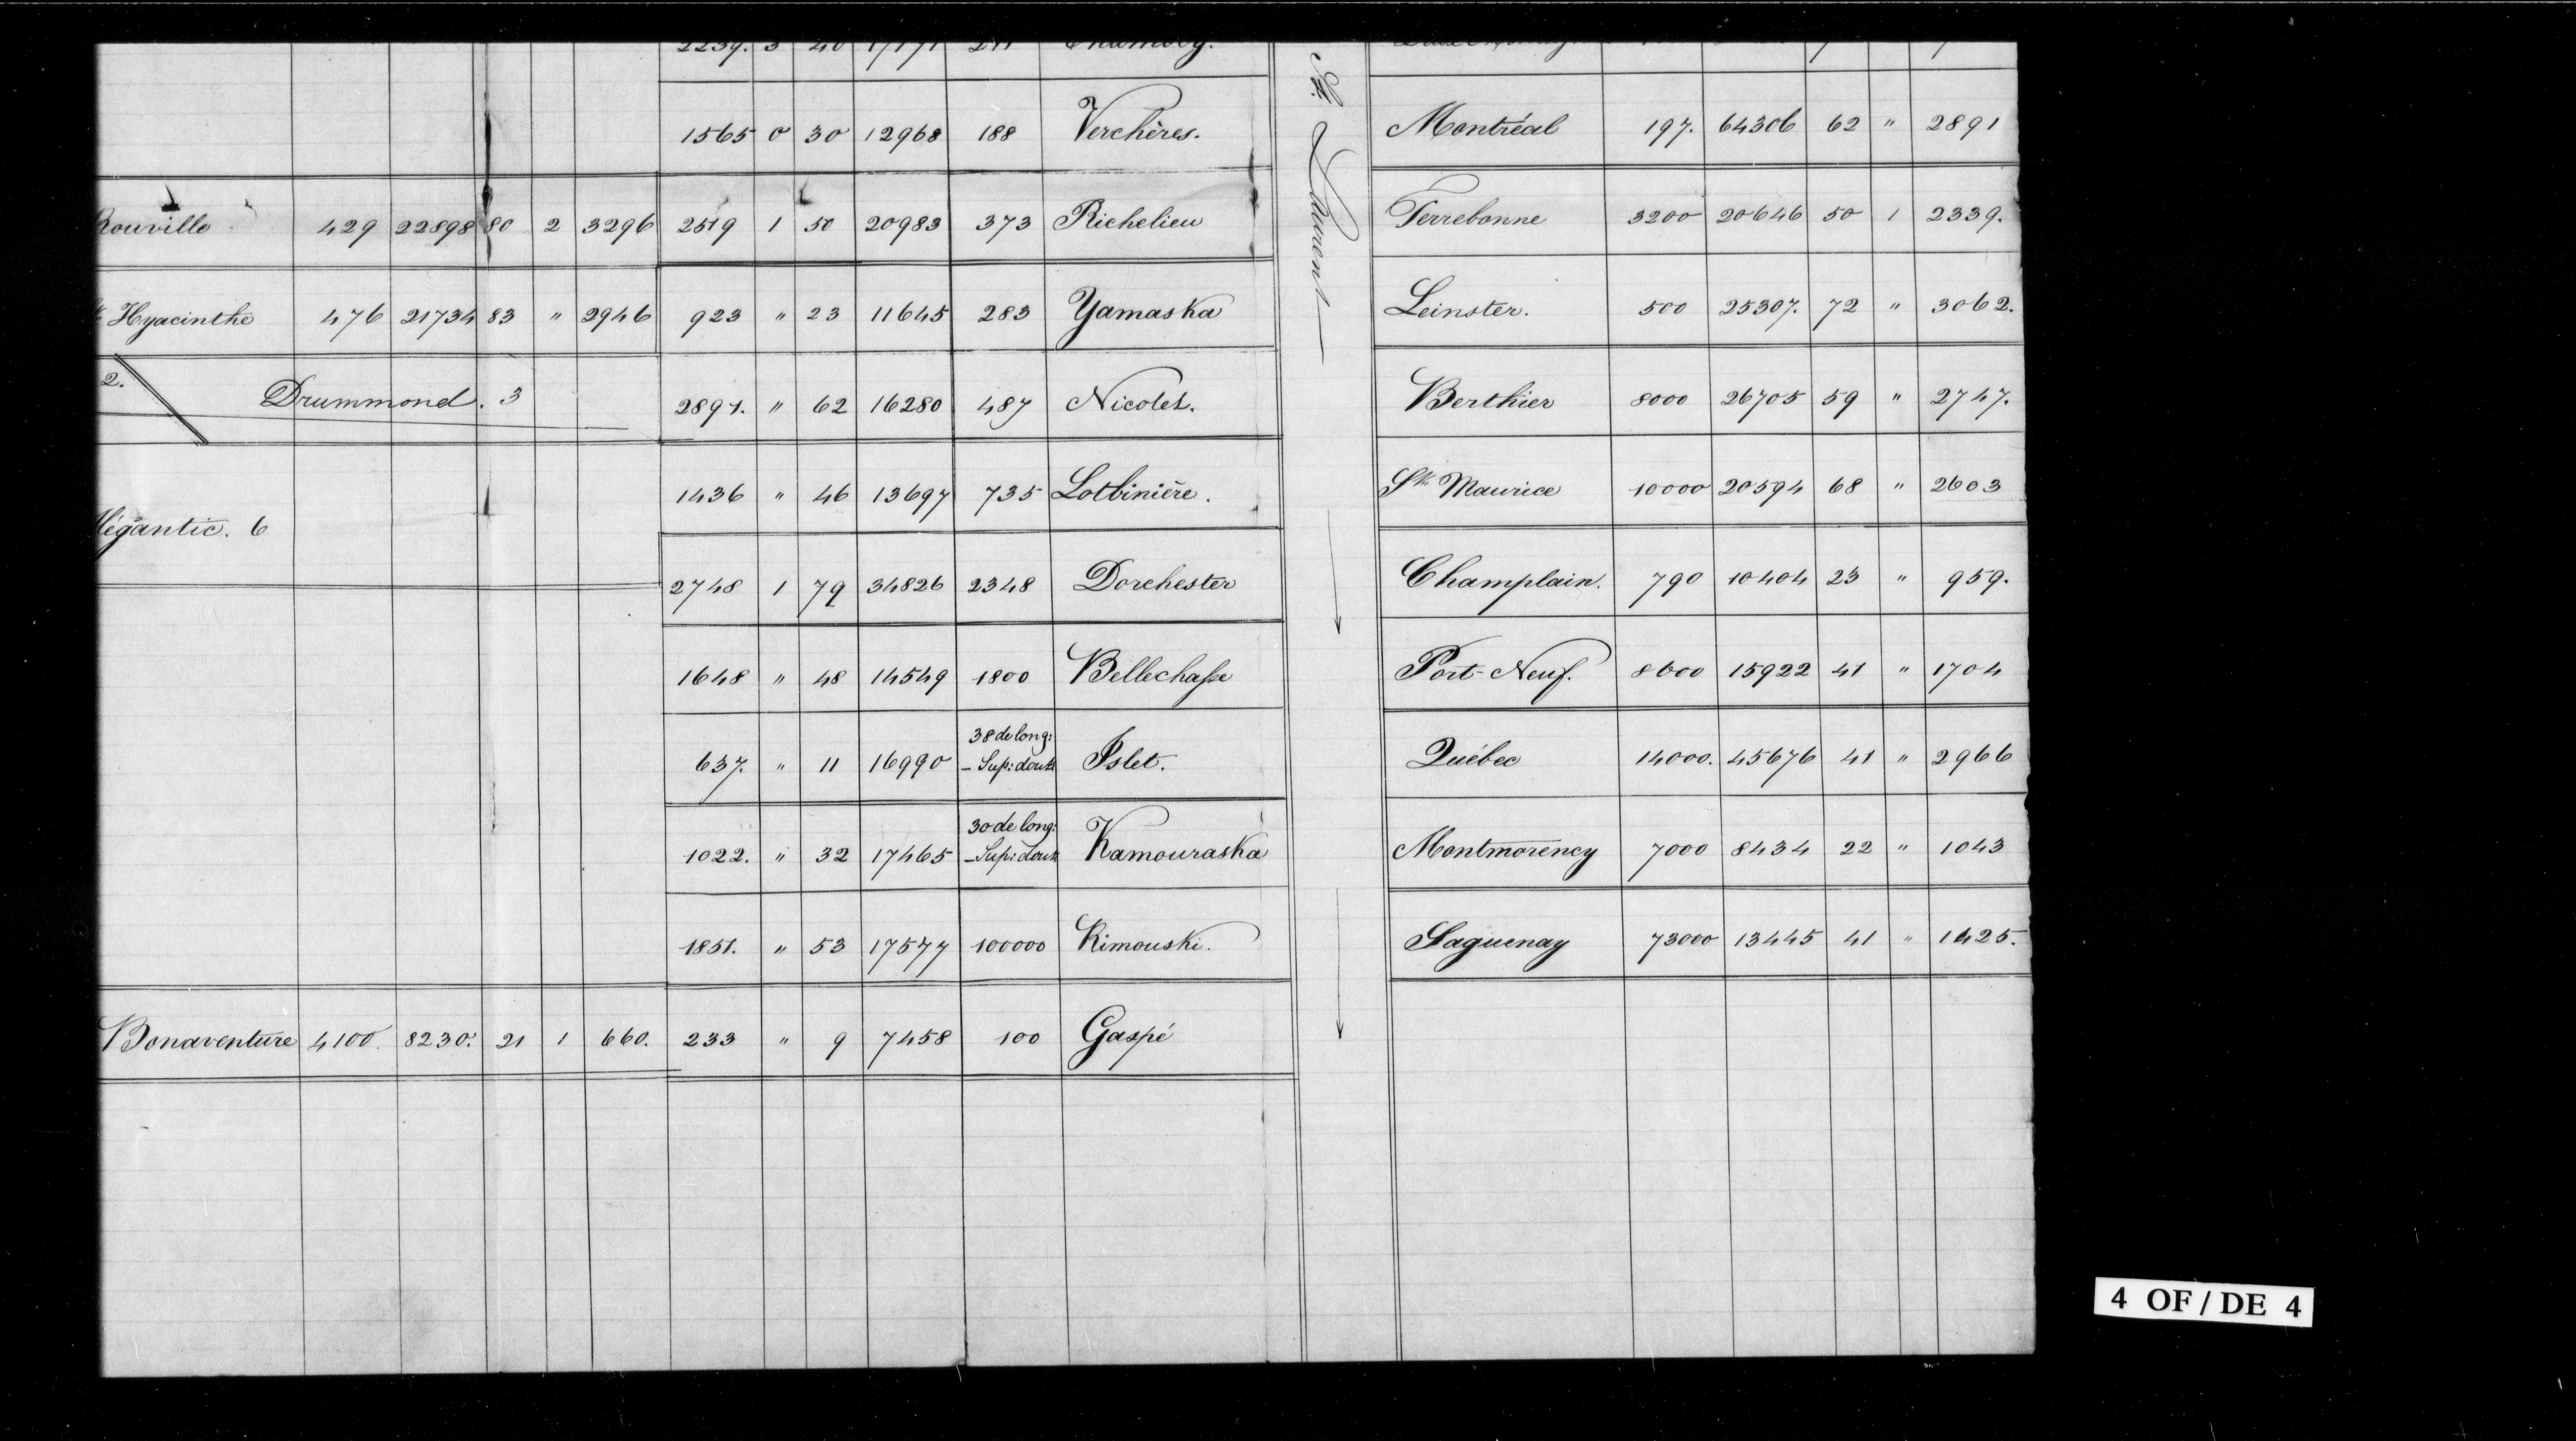 2239. 3 40 17171 211 Chambly.
1565 0 30 12968 188 Verchères. Montréal 197. 64306 62 " 2891
Rouville 429 22898 80 2 3296 2519 1 50 20983 373 Richelieu Terrebonne 3200 20646 50 1 2339.
St. Laurent
Hyacinthe 476 21734 83 " 2946 923 " 23 11645 283 Yamaska Leinster. 500 25307. 72 " 3062.
2. Drummond. 3 2891. " 62 16280 487 Nicolet. Berthier 8000 26705 59 " 2747.
1436 " 46 13697 735 Lotbinière. St. Maurice 10000 20594 68 " 2603
Mégantic. 6
2748 1 79 34826 2348 Dorchester Champlain. 790 10404 23 " 959.
1648 " 48 14549 1800 Bellechasse Port-Neuf. 8600 15922 41 " 1704
38 de long:
637. " 11 16990 - Sup: dout: Islet. Québec 14000. 45676 41 " 2966
30 de long:
1022. " 32 17465 - Sup: dout: Kamouraska Montmorency 7000 8434 22 " 1043
1851. " 53 17577 100000 Rimouski. Saguenay 73000 13445 41 " 1425.
Bonaventure 4100. 8230. 21 1 660. 233 " 9 7458 100 Gaspé
4 OF / DE 4